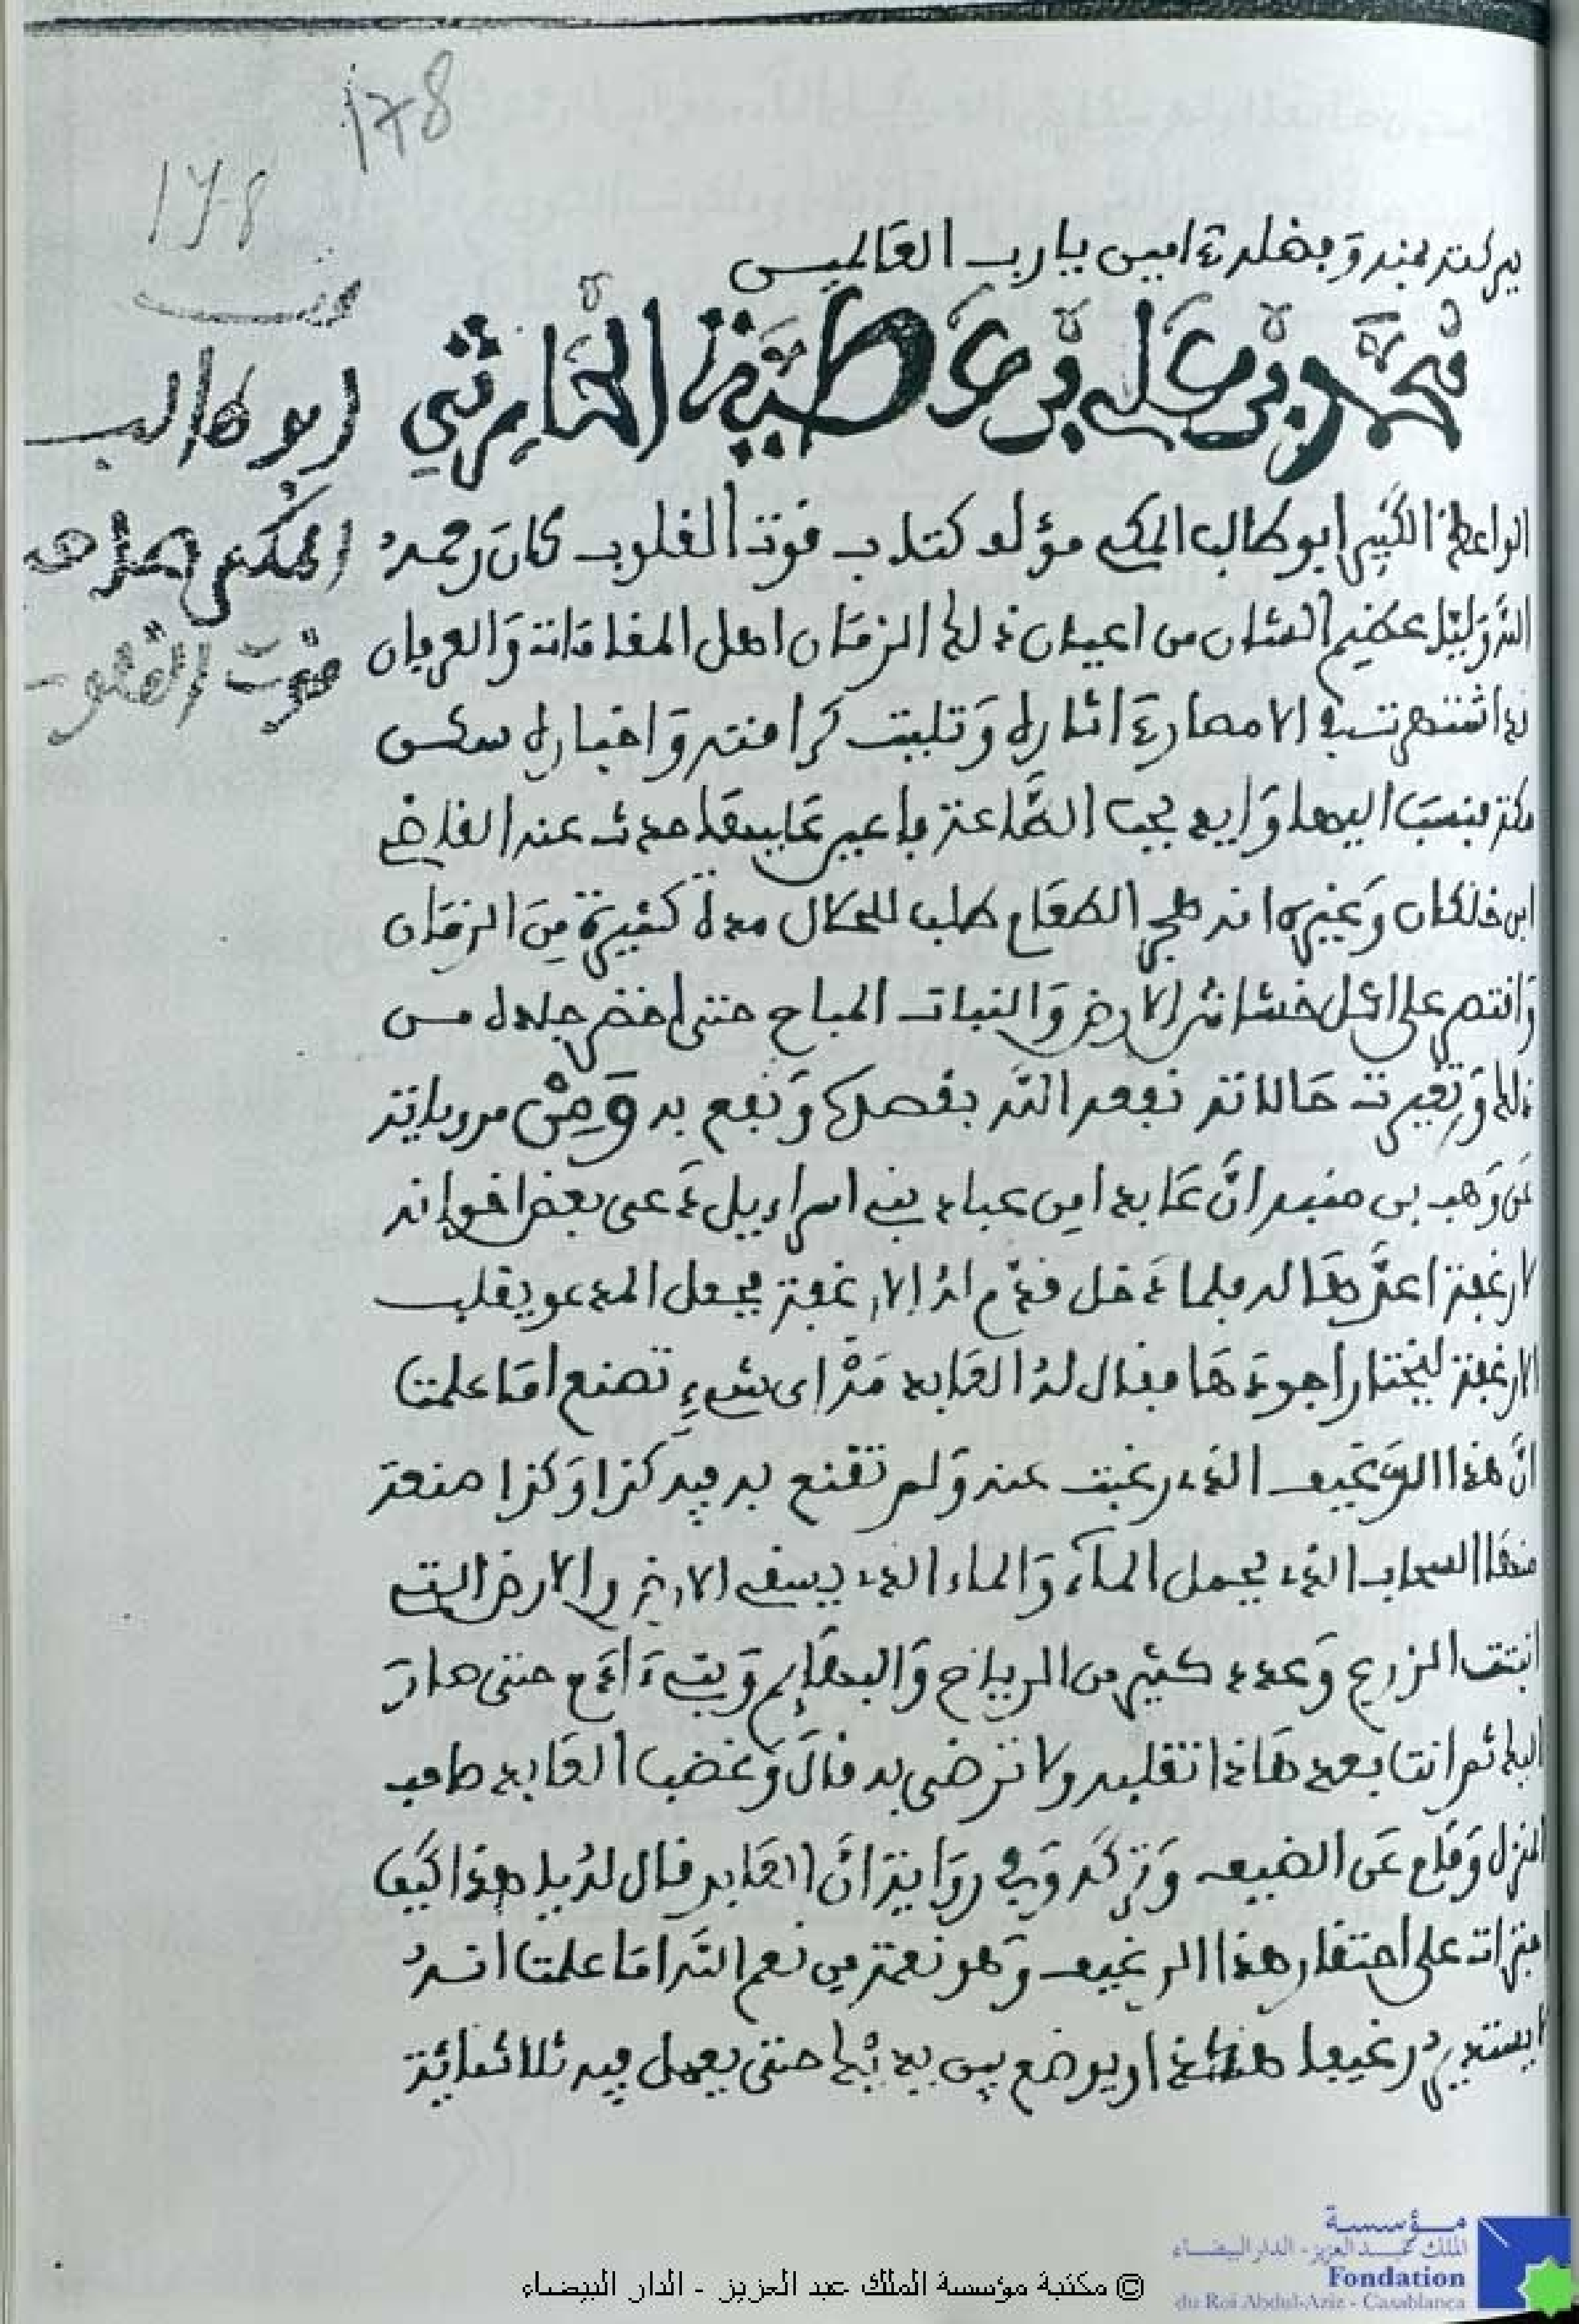 178
178
ببركته بمنه وبفضله ءامين يارب العالمين
محمد بن علي بن عطية الحارثي
ابو طالب
المكي صاحب
قوت القلوب
الواعظ الكبير ابو طالب المكي مؤلف كتاب قوت القلوب كان رحمه
الله وليا عظيم الشان من اعيان ذلك الزمان اهل المقامات والعرفان
اشتهرت في الامصار ءاثاره وتليت كراماته واخباره سكن
مكة فنسب اليها وايد بحب الطاعة حدث عنه القاضي
ابن خلكان وغيره انه هجر الطعام طلب للحلال مدة كثيرة من الزمان
واقتصر على اكل خشائش الارض والنبات المباح حتى اخضر جلده من
ذلك وتغيرت حالاته نفعه الله بقصده ونفع به ومن مروياته
عن وهب بن منبه ان عابدا من عباد بني اسراءيل دعى بعض اخوانه
لارغفة اعدها له فلما دخل قدم له الارغفة فجعل المدعو يقلب
الارغفة ليختار اجودها فقال له العابد مه اى شيء تصنع اما علمت
ان هذا الرغيف الذي رغبت عنه ولم تقنع به فيه كذا وكذا صنعة
منها السحاب الذي يحمل الماء والماء الذي يسقي الارض والارض التي
انبتت الزرع وعدد كثير من الرياح والبهائم وبني ءادم حتى صار
اليك ثم انت بعد هاذا تقلبه ولا ترضى به قال وغضب العابد صاحب
المنزل وقلع عن الضيعه وتركه وفي رواية ان العابد قال له يا هذا كيف
اجترات على احتقار هذا الرغيف وهو نعمة من نعم الله اما علمت انه
لا يستدير رغيفا هكذا او يوضع بين يديك حتى يعمل فيه ثلاثمائة
© مكتبة مؤسسة الملك عبد العزيز - الدار البيضاء
مؤسسة
الملك عبد العزيز - الدار البيضاء
Fondation
du Roi Abdul-Aziz - Casablanca